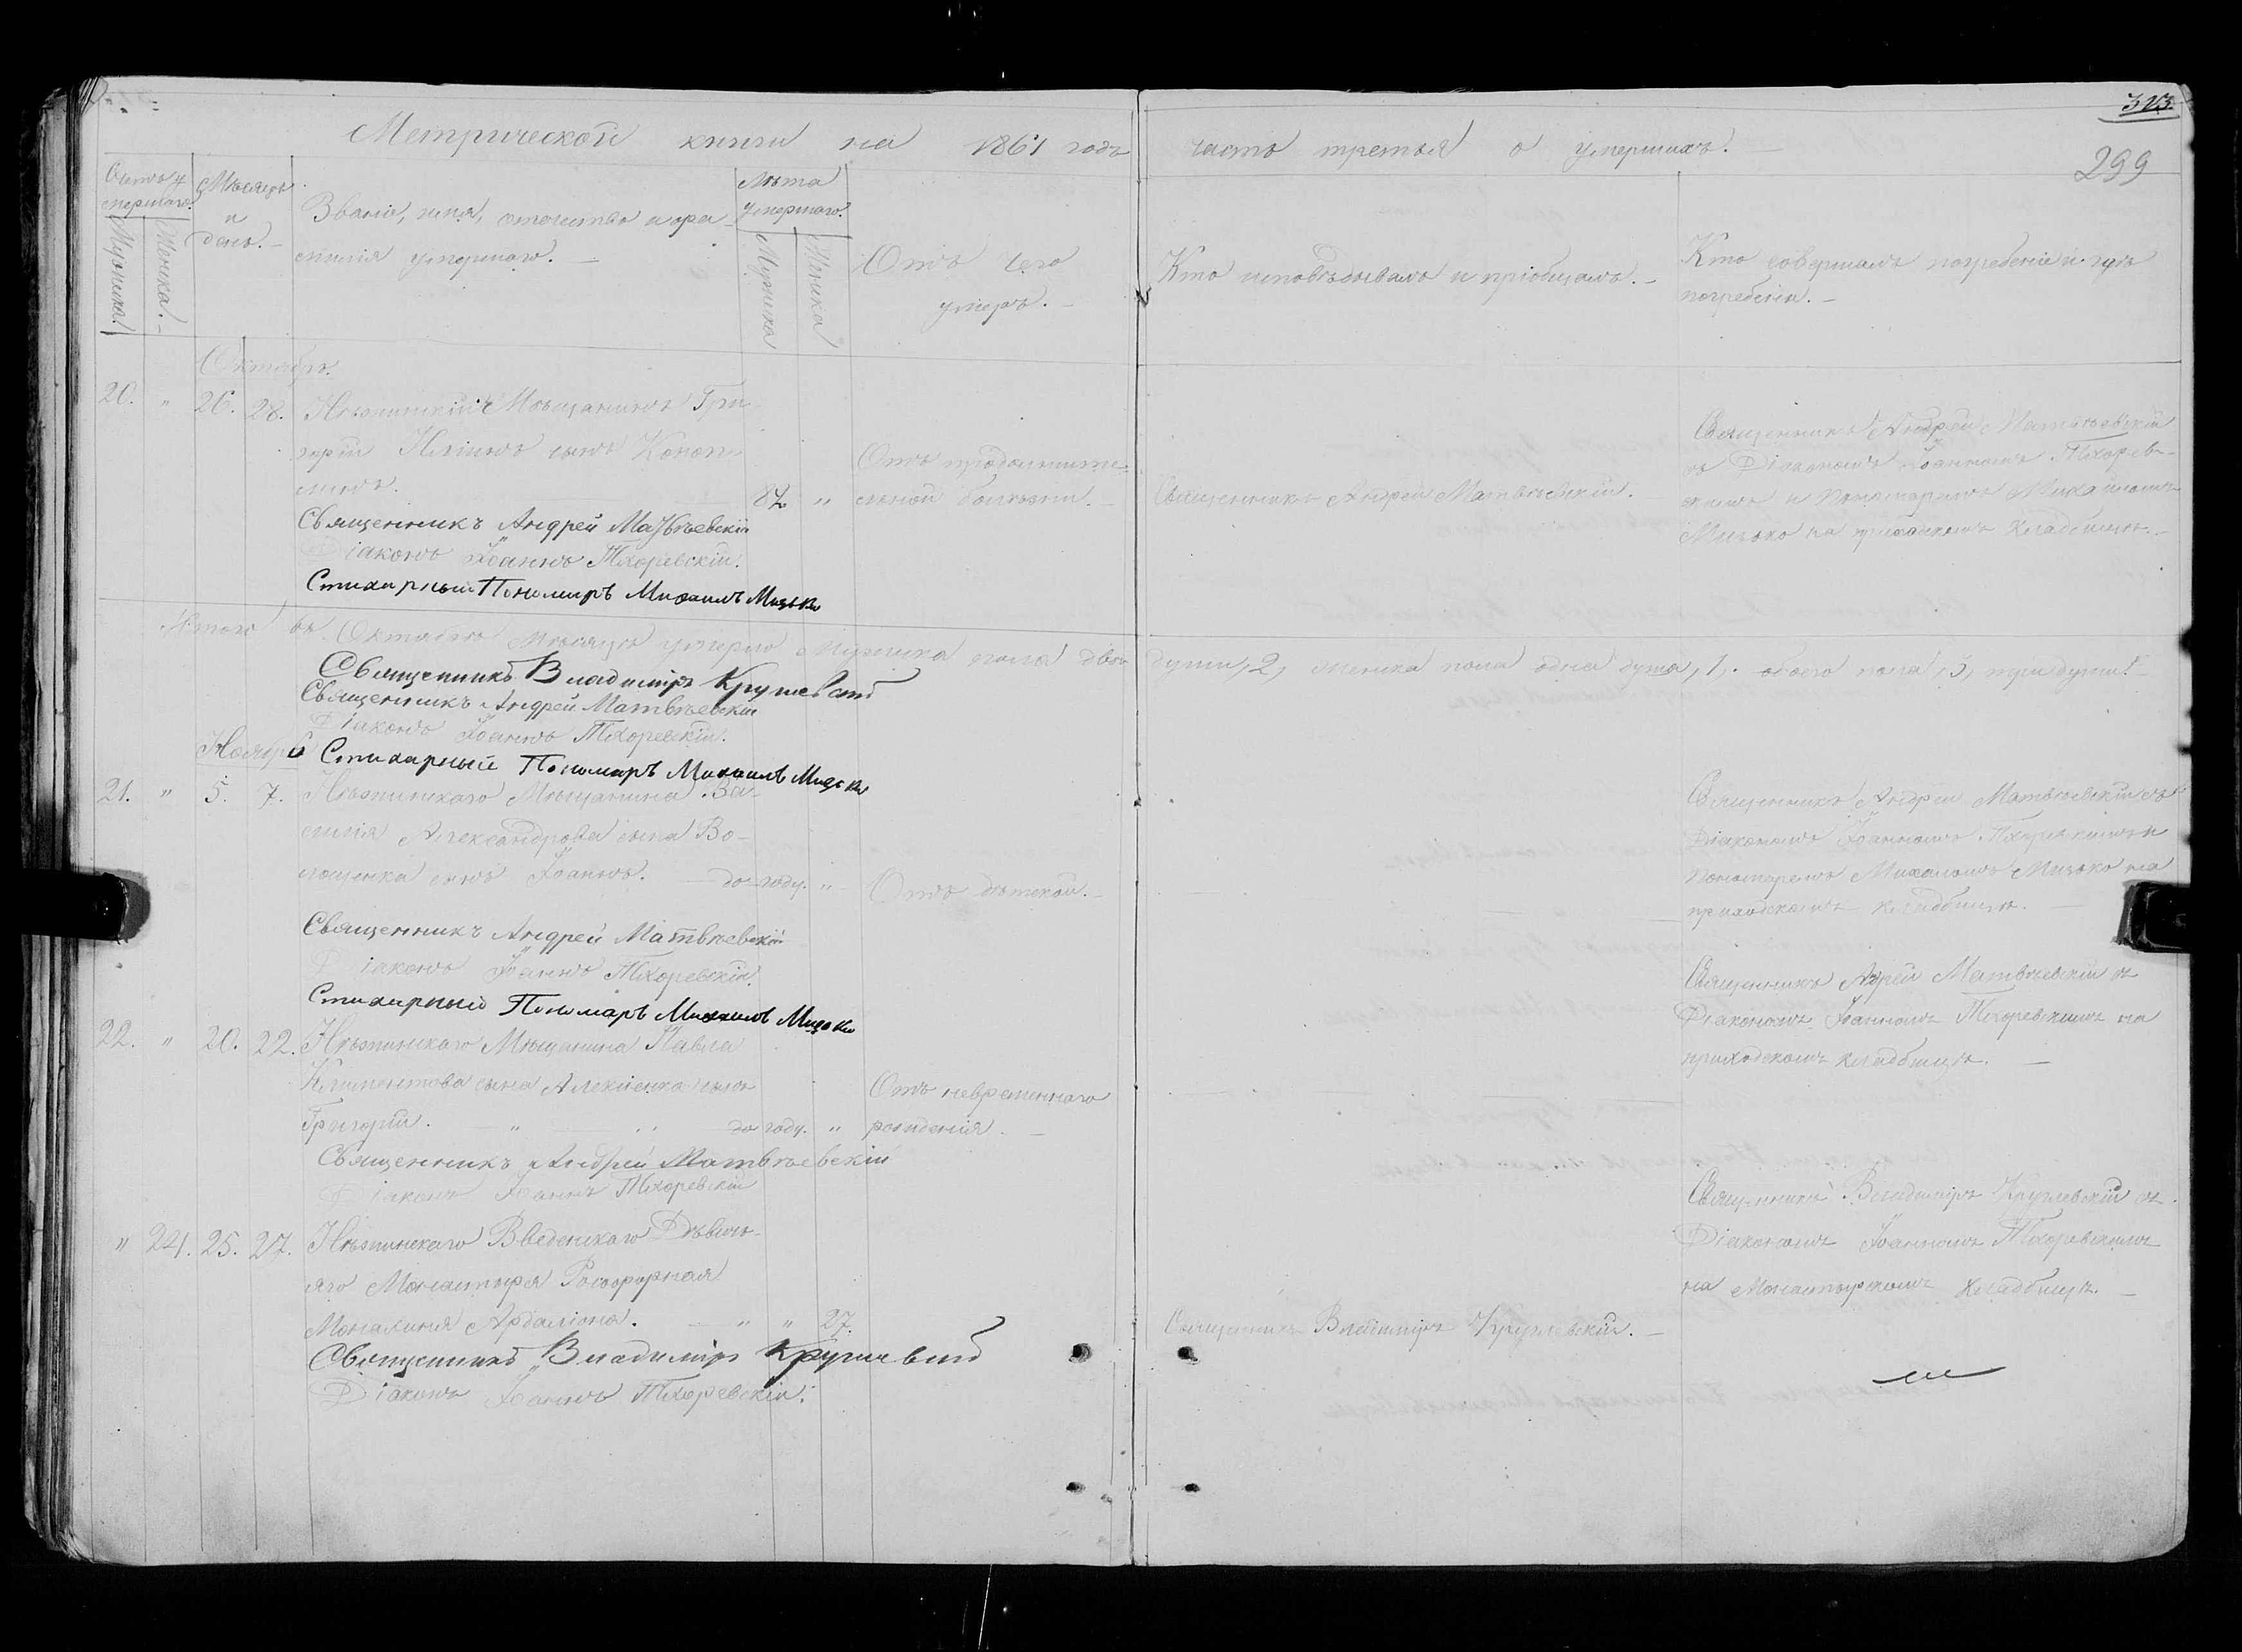 323
299
Метрической книги на 1861 годъ часть третья о умершихъ.
Счетъ у-
мершаго.
Мужска.
Женска.
Мѣсяцъ
и
день.
Званіе, имя, отчество и фа-
милія умершаго.
Лѣта
умершаго.
Мужска
Женска
Отъ чего
умеръ.
Кто исповѣдывалъ и пріобщалъ.
Кто совершалъ погребеніе и гдѣ
погребенъ.
Октябрь.
20. " 26. 28. Нѣжинскій Мѣщанинъ Гри-
горій сынъ Коноп-
линъ. 82 "
Отъ продолжите-
льной болѣзни.
Священникъ Андрей Матвѣевскій.
Священникъ Андрей Матвѣевскій
съ Діакономъ Іоанномъ Тхорев-
скимъ и Пономаремъ Михаиломъ
Мизько на приходскомъ кладбищѣ.
Священникъ Андрей Матвѣевскій
Діаконъ Іоаннъ Тхоревскій.
Стихарный Пономаръ Михаилъ Мизько
Итого въ Октябрѣ мѣсяцѣ умерло мужска пола двѣ души, 2, женска пола одна душа, 1, обоего пола, 3, три души.
Священникъ Владиміръ
Священникъ Андрей Матвѣевскій
Діаконъ Іоаннъ Тхоревскій.
Стихарный Пономаръ Михаилъ Мизько
Ноябрь
21. " 5. 7. Нѣжинскаго Мѣщанина Ва-
силія Александрова сына Во-
лощенка сынъ Іоаннъ. до году. "
Отъ дѣтской.
Священникъ Андрей Матвѣевскій съ
Діакономъ Іоанномъ Тхоревскимъ и
Пономаремъ Михаиломъ Мизько на
приходскомъ кладбищѣ.
Священникъ Андрей Матвѣевскій
Діаконъ Іоаннъ Тхоревскій.
Стихарный Пономаръ Михаилъ Мизько
22. " 20. 22. Нѣжинскаго Мѣщанина Павла
Климентова сына Алексіенка сынъ
Григорій. " " до году. "
Отъ невременнаго
рожденія.
Священникъ Адрей Матвѣевскій съ
Діакономъ Іоанномъ Тхоревскимъ на
приходскомъ кладбищѣ.
Священникъ Андрей Матвѣевскій
Діаконъ Іоаннъ Тхоревскій
" 24. 25. 27. Нѣжинскаго Введенскаго Дѣвичь-
яго Монастыря Рясофорная
Монахиня Ардаліона. " " 27.
Священникъ Владиміръ
Священникъ Владиміръ съ
Діакономъ Іоанномъ Тхоревскимъ
на Монастырскомъ кладбищѣ.
Священникъ Владиміръ
Діаконъ Іоаннъ Тхоревскій.